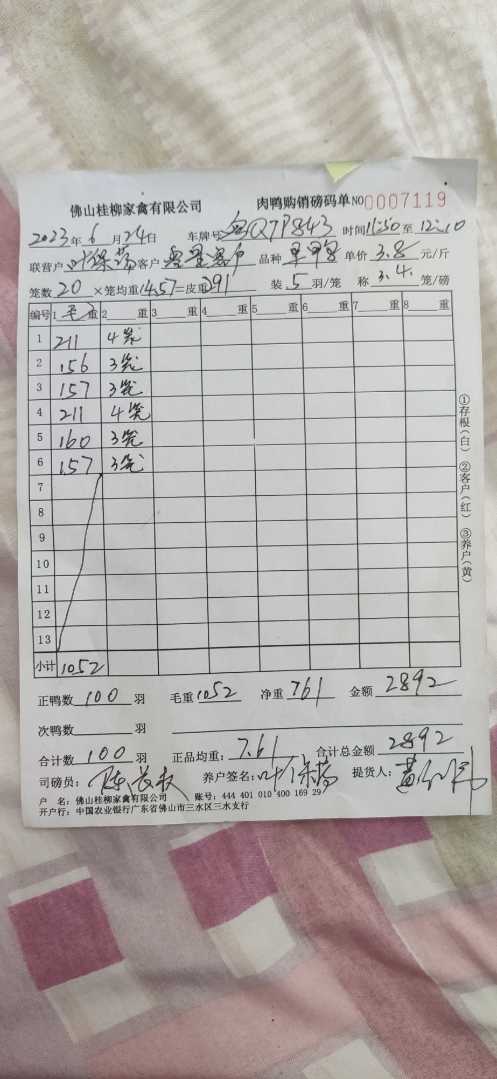 佛山桂柳家禽有限公司 肉鸭购销磅码单 NO 0007119
2023年6月24日 车牌号 粤Q7P843 时间 11:50 至 12:10
联营户 叶保 客户 品种 单价 3.8 元/斤
笼数 20 ×笼均重 14.57 =皮重 291 装 5 羽/笼 称 3.4. 笼/磅
编号 1 毛重 2 重 3 重 4 重 5 重 6 重 7 重 8 重
1 211 4笼
2 156 3笼
3 157 3笼
4 211 4笼
5 160 3笼
6 157 3笼
7
8
9
10
11
12
13
小计 1052
①存根(白) ②客户(红) ③养户(黄)
正鸭数 100 羽 毛重 1052 净重 761 金额 2892
次鸭数 羽
合计数 100 羽 正品均重: 7.61 合计总金额 2892
司磅员: 陈 养户签名: 叶保 提货人: 黄
户 名: 佛山桂柳家禽有限公司 账号: 444 401 010 400 169 29
开户行: 中国农业银行广东省佛山市三水区三水支行